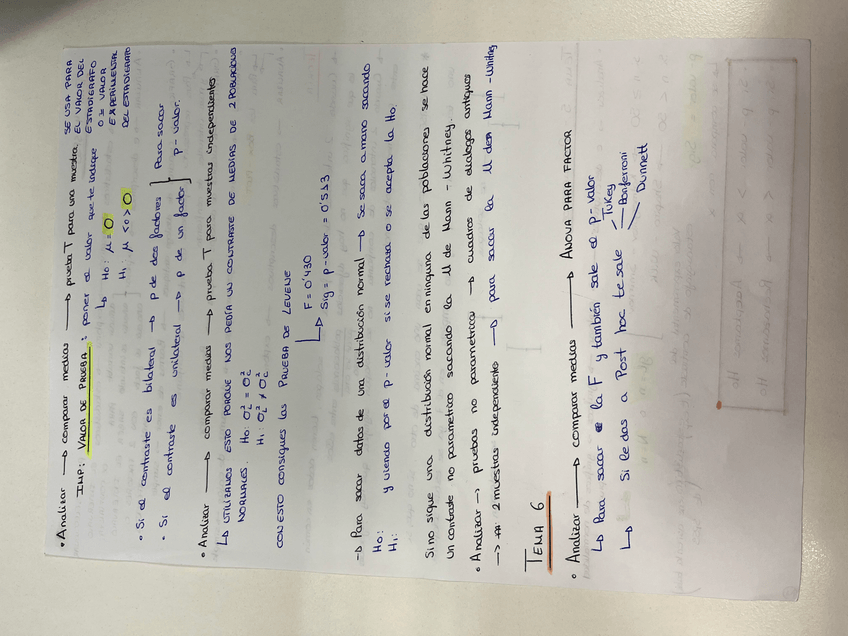 • Analizar → comparar medias → prueba T para una muestra:
IMP: VALOR DE PRUEBA: poner el valor que te indique
↳ H₀: μ = 0
H₁: μ <0> 0
SE USA PARA
EL VALOR DEL
ESTADÍGRAFO
O SE VALOR
EXPERIMENTAL
DEL ESTADIGRAFO
• Si el contraste es bilateral → p de dos factores
• Si el contraste es unilateral → p de un factor
Para sacar
p-valor.
• Analizar → comparar medias → prueba T para muestras independientes
↳ UTILIZAMOS ESTO PORQUE NOS PEDÍA UN CONTRASTE DE MEDIAS DE 2 POBLACIONES
NORMALES. H₀: σ²L = σ²C
H₁: σ²L ≠ σ²C
CON ESTO CONSIGUES LAS PRUEBA DE LEVENE
↳ F = 0'430
Sig = p-valor = 0'513
→ Para sacar datos de una distribución normal → Se saca a mano sacando
H₀:
H₁:
y viendo por el p-valor si se rechaza o se acepta la H₀.
Si no sigue una distribución normal en ninguna de las poblaciones se hace
un contraste no parametrico sacando la U de Mann - Whitney.
• Analizar → pruebas no parametricas → cuadros de dialogos antiguos
→ 2 muestras independientes → para sacar la U de Mann - Whitney
TEMA 6
• Analizar → comparar medias → ANOVA PARA FACTOR
↳ Para sacar la F y también sale el p-valor
↳ Si le das a Post hoc te sale
Tukey
Bonferroni
Dunnett